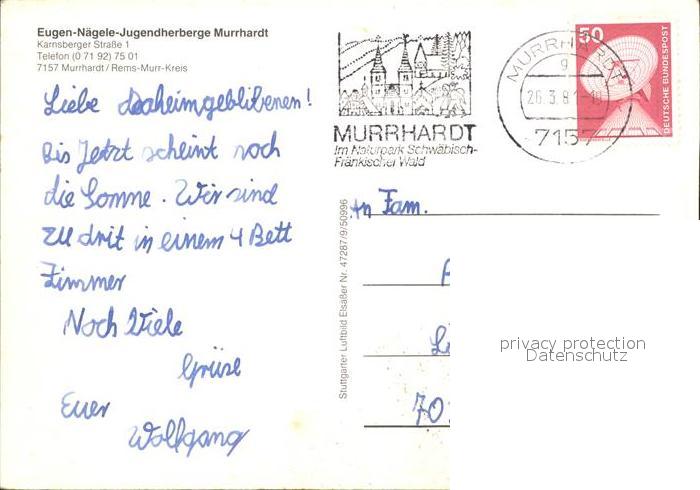 Eugen-Nägele-Jugendherberge Murrhardt
Karnsberger Straße 1
Telefon (0 71 92) 75 01
7157 Murrhardt / Rems-Murr-Kreis
Liebe Daheimgeblibenen!
Bis Jetzt scheint noch
die Sonne. Wir sind
zu drit in einem 4 Bett
Zimmer
Noch Viele
Grüse
Euer
Wolfgang
MURRHARDT
Im Naturpark Schwäbisch-
Fränkischer Wald
MURRHARDT
g
26.3.8
7157
50
DEUTSCHE BUNDESPOST
Stuttgarter Luftbild Elsaßer Nr. 47287/9/50996
An Fam.
70
privacy protection
Datenschutz